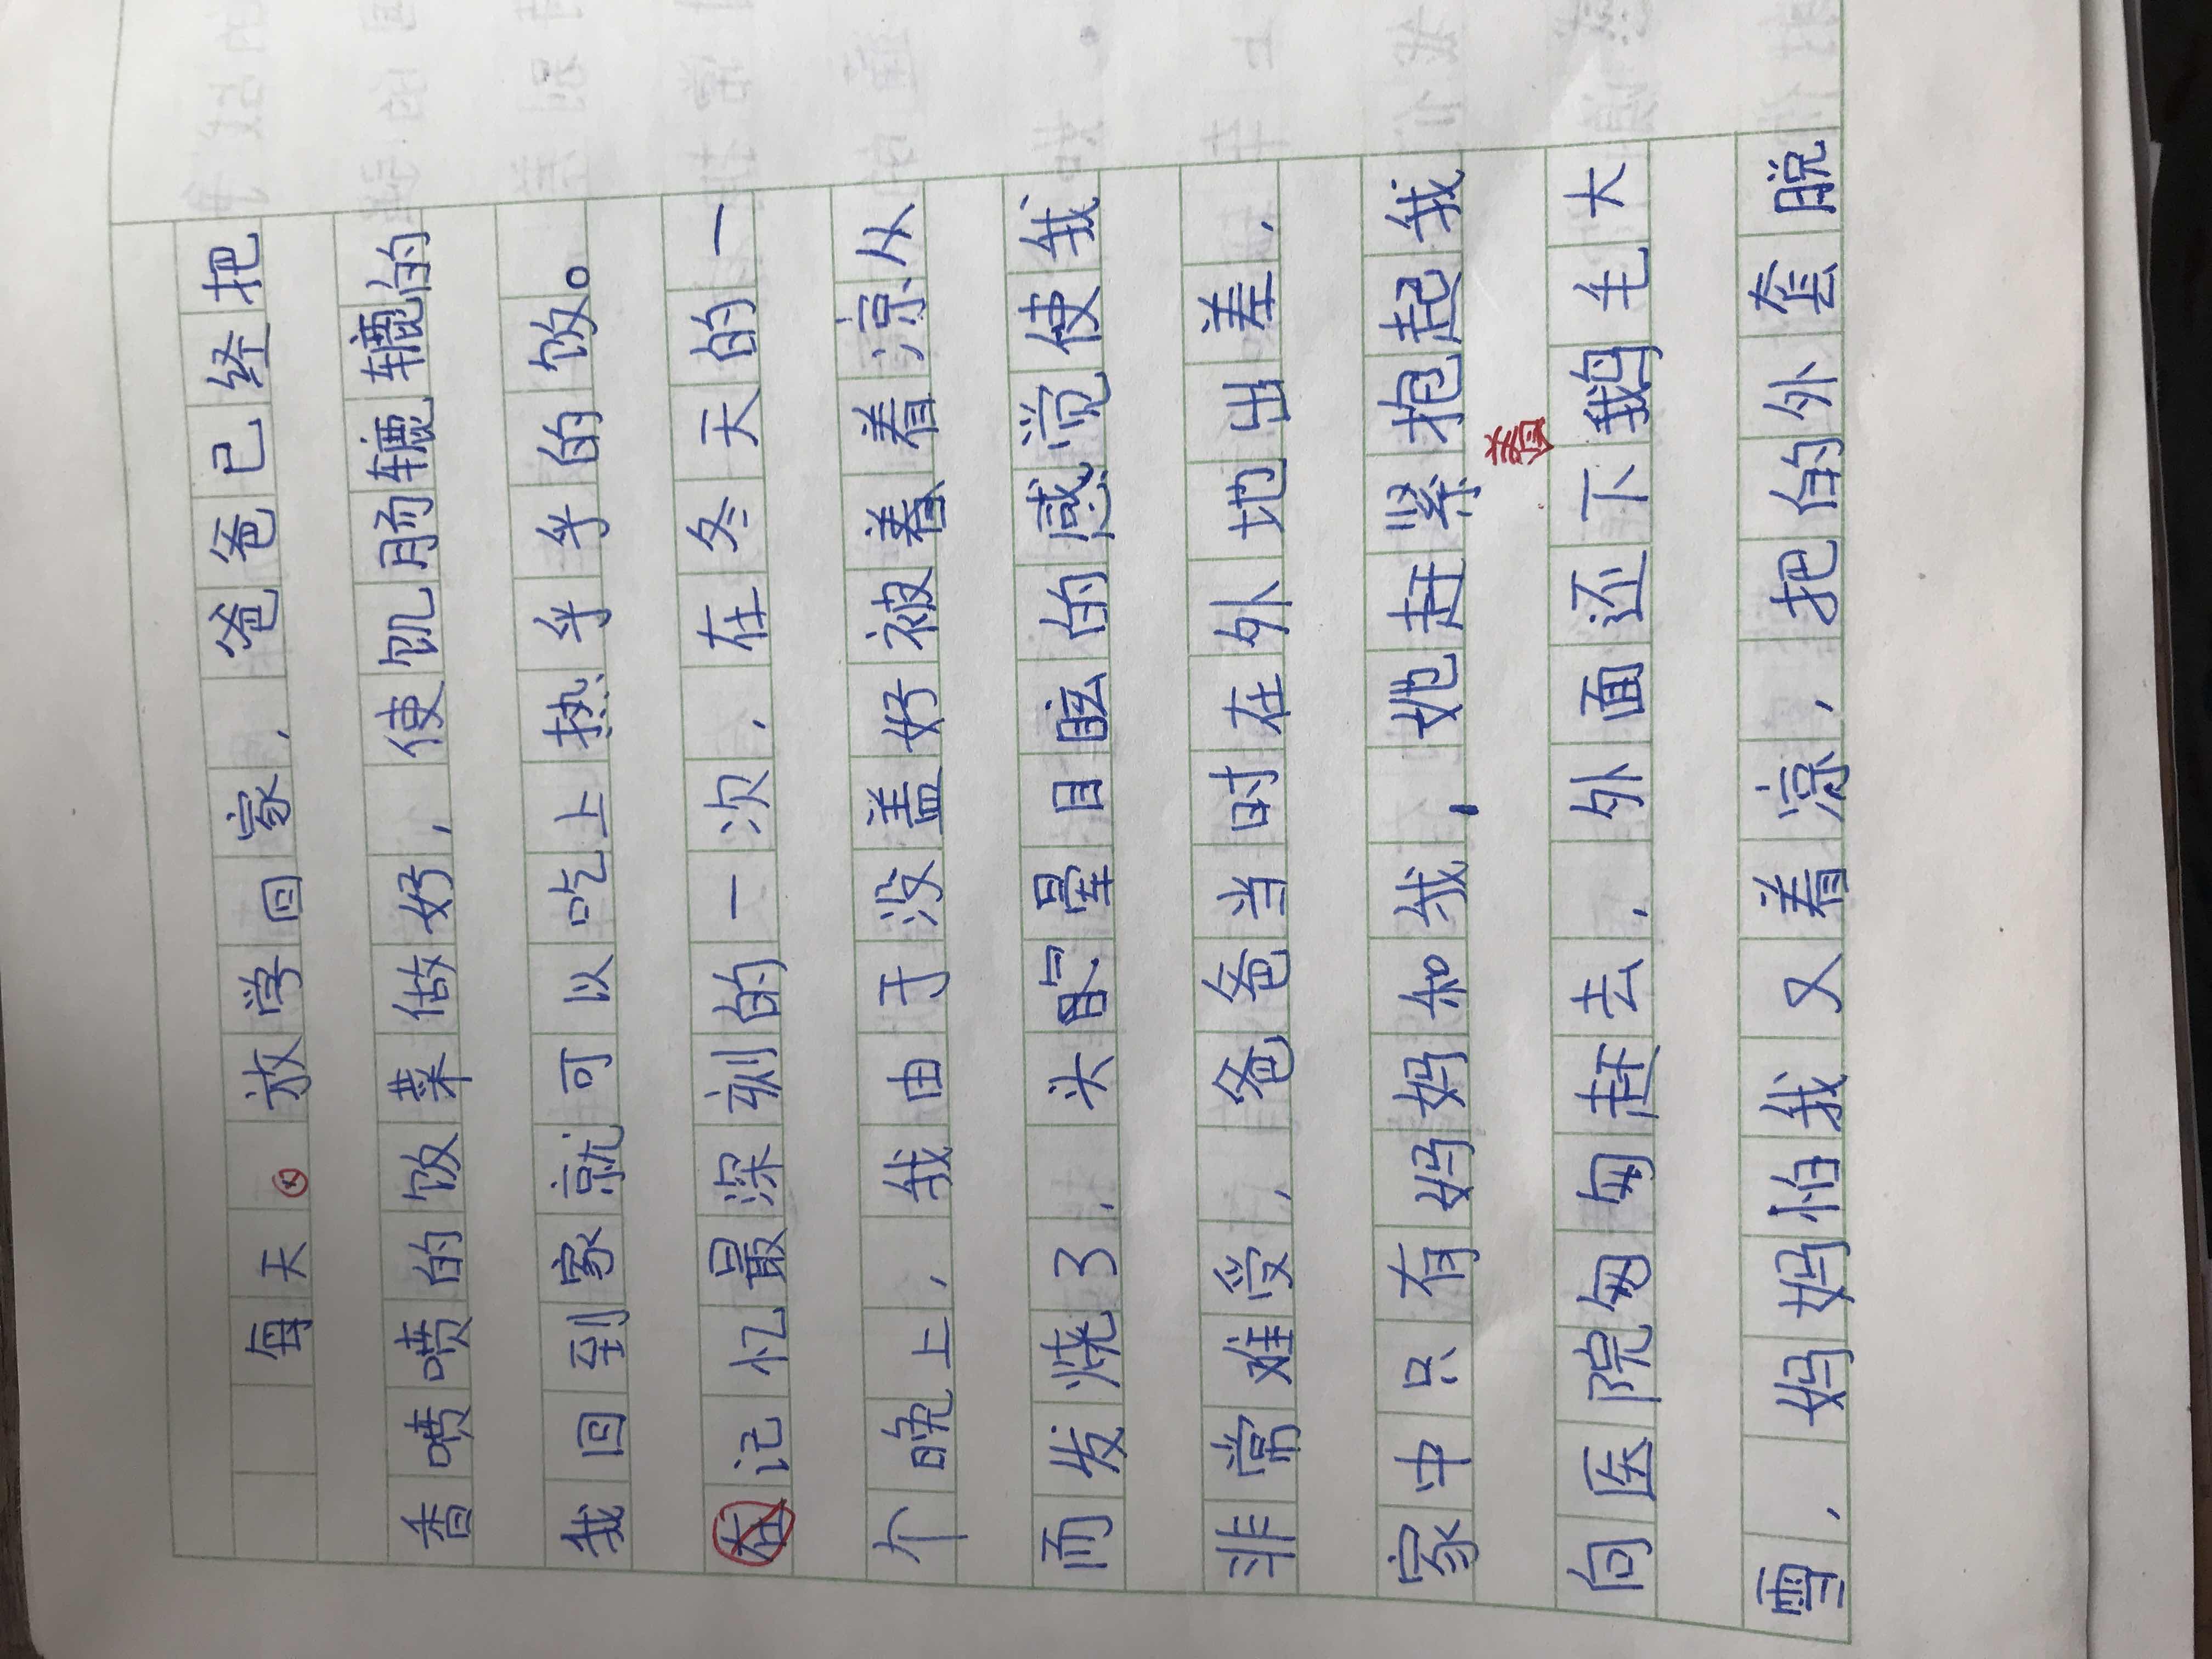 每天。放学回家,爸爸已经把
香喷喷的饭菜做好,使饥肠辘辘的
我回到家就可以吃上热乎乎的饭。
在记忆最深刻的一次,在冬天的一
个晚上,我由于没盖好被着着凉从
而发烧了,头晕目眩的感觉使我
非常难受,爸爸当时在外地出差,
家中只有妈妈和我,她赶紧抱起我
向医院匆匆赶去,外面还下着鹅毛大
雪,妈妈怕我又着凉,把的外套脱